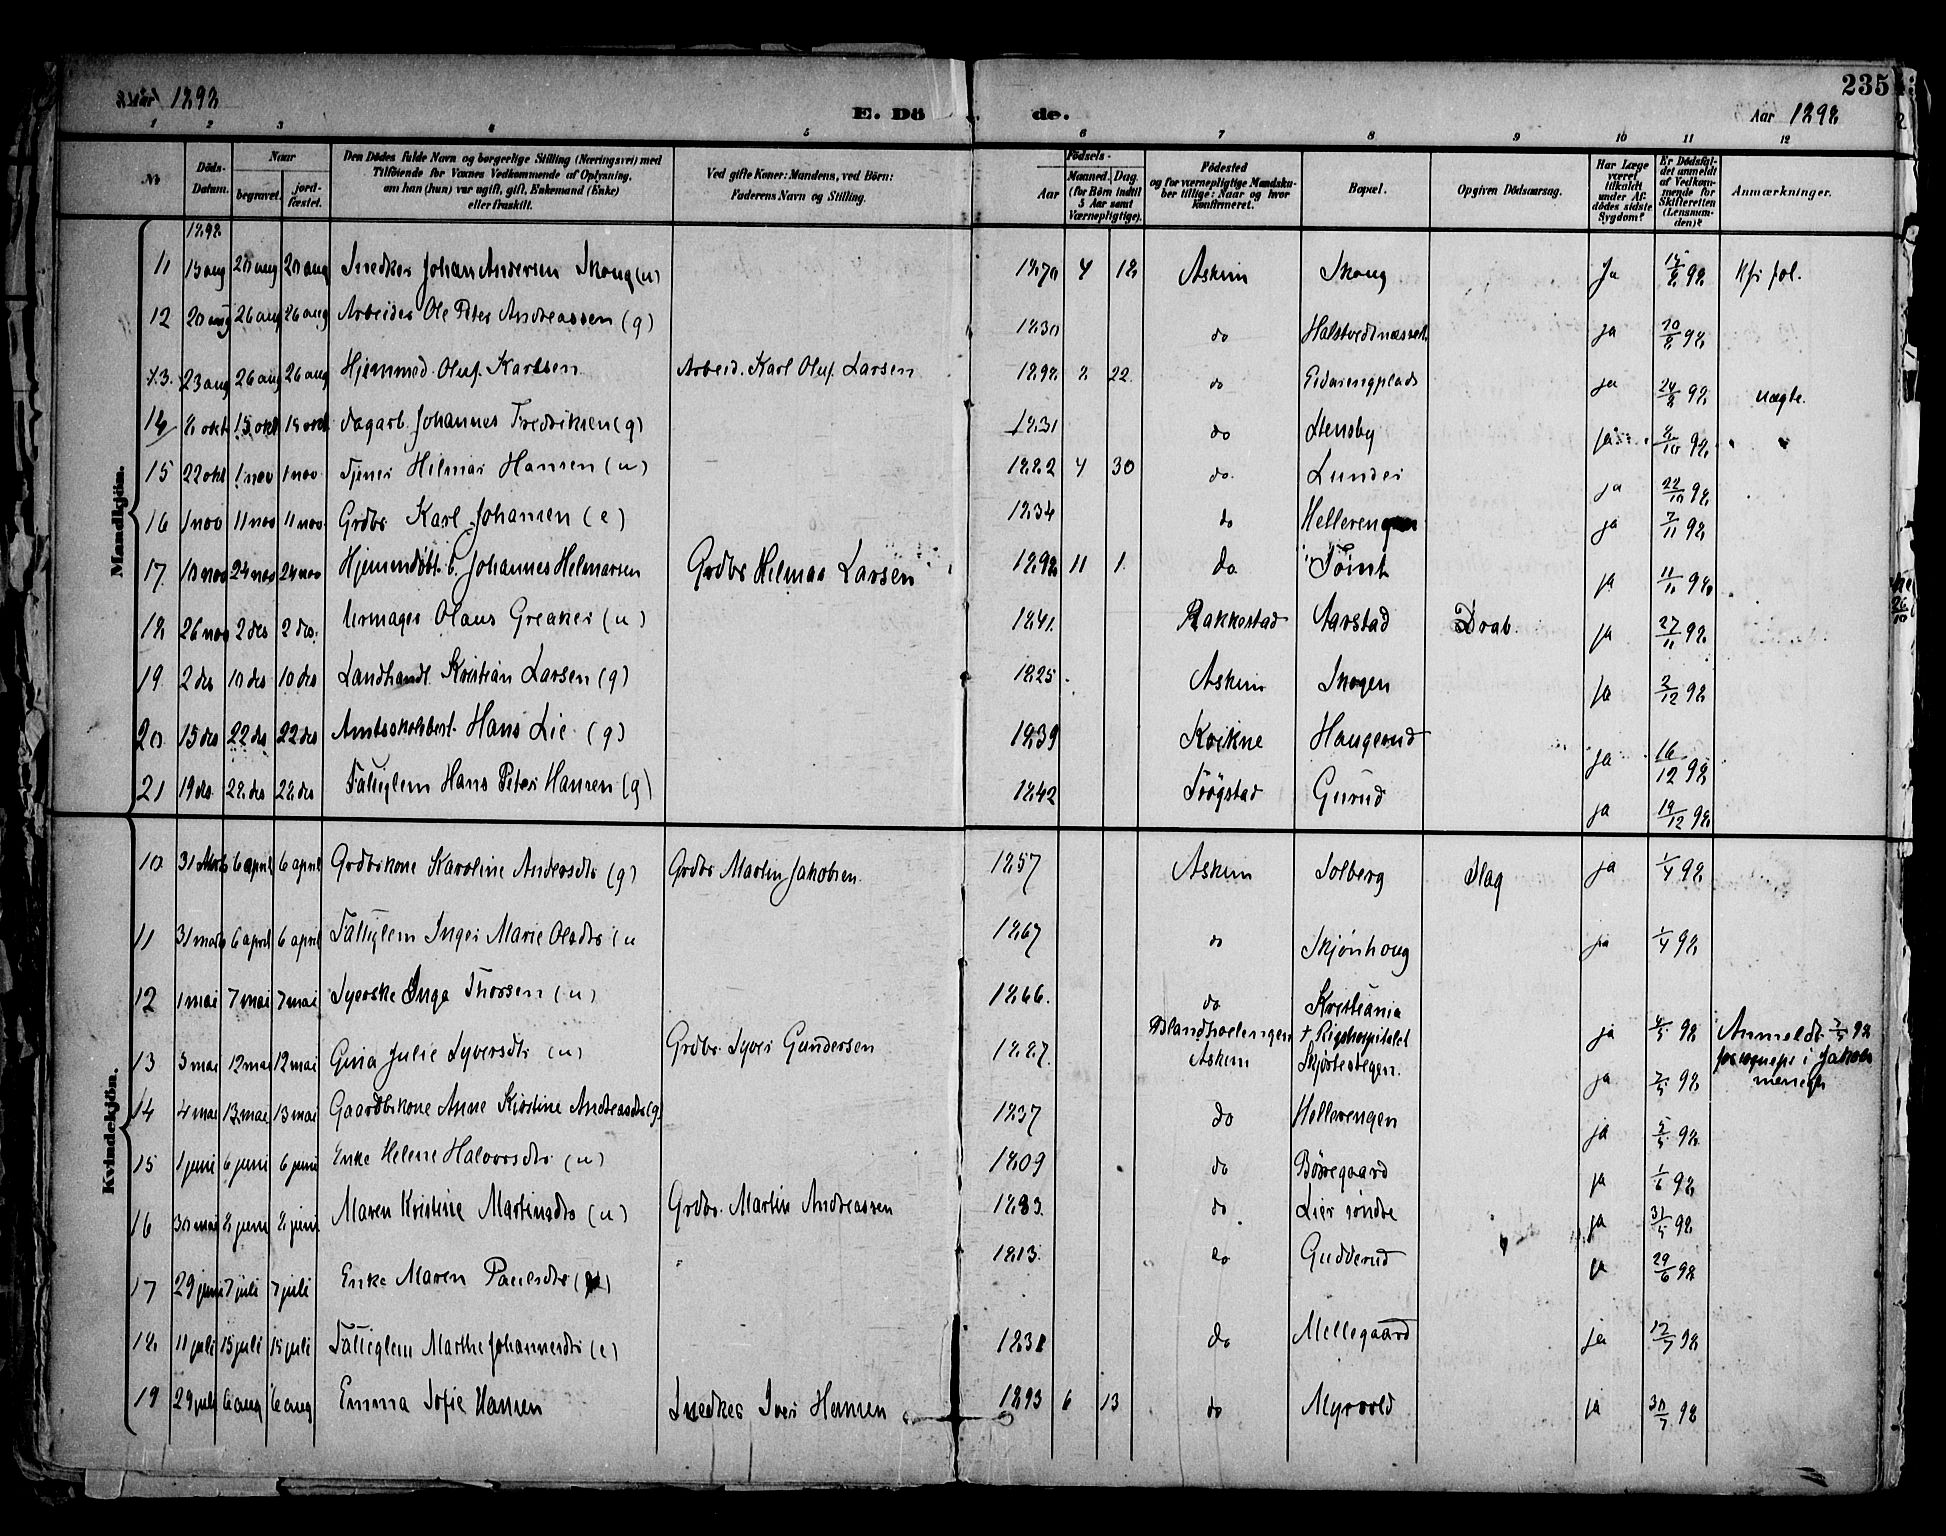 Aar 1892
E. Döde.
235
Aar 1892
1 2 3 4 5 6 7 8 9 10 11 12
No
Döds-Datum.
Naar
begravet.
jord-fæstet.
Den Dödes fulde Navn og borgerlige Stilling (Næringsvei) med
Tilföiende for Voxnes Vedkommende af Oplysning,
om han (hun) var ugift, gift, Enkemand (Enke)
eller fraskilt.
Ved gifte Koner: Mandens, ved Börn:
Faderens Navn og Stilling.
Födsels-
Aar
Maaned. Dag.
(for Börn indtil
5 Aar samt
Værnepligtige).
Födested
og for værnepligtige Mandsku-
ber tillige: Naar og hvor
Konfirmeret.
Bopæl.
Opgiven Dödsaarsag.
Har Læge
været
tilkaldt
under Af-
dödes sidste
Sygdom?
Er Dödsfal-
det anmeldt
af Vedkom-
mende for
Skifteretten
(Lensman-
den)?
Anmærkninger.
Mandkjön.
1892
11 15 aug 20 aug 20 aug Snedker Johan Andersen Skoug (u) 1870 4 18 Askim Skoug Ja 15/8 92
12 20 aug 26 aug 26 aug Arbeider Ole Peter Andreassen (g) 1830 do ja 20/8 92
13. 23 aug 26 aug 26 aug Hjemmed. Oluf Karlsen Arbeid. Karl Oluf Larsen 1892 2 22 do Eidarengplads ja 24/8 92 uægte.
14 8 okt 15 okt 15 okt Dagarb. Johannes Fredriksen (g) 1831 do Stensby ja 8/10 92
15 22 okt 1 nov 1 nov Tjener Hilmar Hansen (u) 1882 4 30 do. Lunder ja 22/10 92
16 1 nov 11 nov 11 nov Grdbr Karl Johansen (e) 1834 do Hellerengen ja 7/11 92
17. 10 nov 24 nov 24 nov Hjemmedöbt b. Johannes Helmersen Grdbr Hilmar Larsen 1892 11 1 do Töint ja 11/11 92
18 26 nov 2 des 2 des. Urmager Olaus Greaker (u) 1841. Rakkestad Aarstad Drab. ja 27/11 92
19. 2 des 10 des 10 des Landhandl. Kristian Larsen (g) 1825. Askim Skogen ja 3/12 92
20. 15 des 22 des 22 des Amtsskolebest. Hans Lie (g) 1839 Kvikne Haugerud ja 16/12 92
21 19 des 22 des 22 des Fattiglem Hans Peter Hansen (g) 1842 TröGstad Gurud ja 19/12 92
Kvindekjön.
10 31 Mars 6 april 6 april Grdbrkone Karoline Andersdtr (g) Grdbr Martin Jakobsen. 1857 Askim Solberg Slag ja 1/4 92
11 31 mars 6 april 6 april Fattiglem Inger Marie Olsdtr (u 1867 do Skjönhoug ja 1/4 92
12 1 mai 7 mai 7 mai Syerske Inga Thorsen (u) 1866. do Kristiania
† Rigshospitalet ja 4/5 92 Anmeldt 2/5 92
13 5 mai 12 mai 12 mai Gina Julie Syversdtr (u) Grdbr. Syver Gundersen 1887. Askim ja 7/5 92
14 4 mai 13 mai 13 mai Gaardbrkone Anne Kirstine Andreasdtr (g) 1837 do Hellerengen ja 5/5 92
15 1 juni 6 juni 6 juni Enke Helene Halvorsdtr (u) 1809 do Böregaard ja 1/6 92
16 30 mai 8 juni 8 juni Maren Kristine Martinsdtr (u) Grdbr. Martin Andreassen 1883. do Lier söndre ja 31/5 92
17 29 juni 7 juli 7 juli Enke Maren Paulsdtr 1813. do Gudderud ja 29/6 92
18 11 juli 15 juli 15 juli Fattiglem Marthe Johannesdtr (e) 1831 do Mellegaard ja 12/7 92
19 29 juli 6 aug 6 aug Emma Sofie Hansen Snedker Iver Hansen 1893 6 13 do Myrvold ja 30/7 92